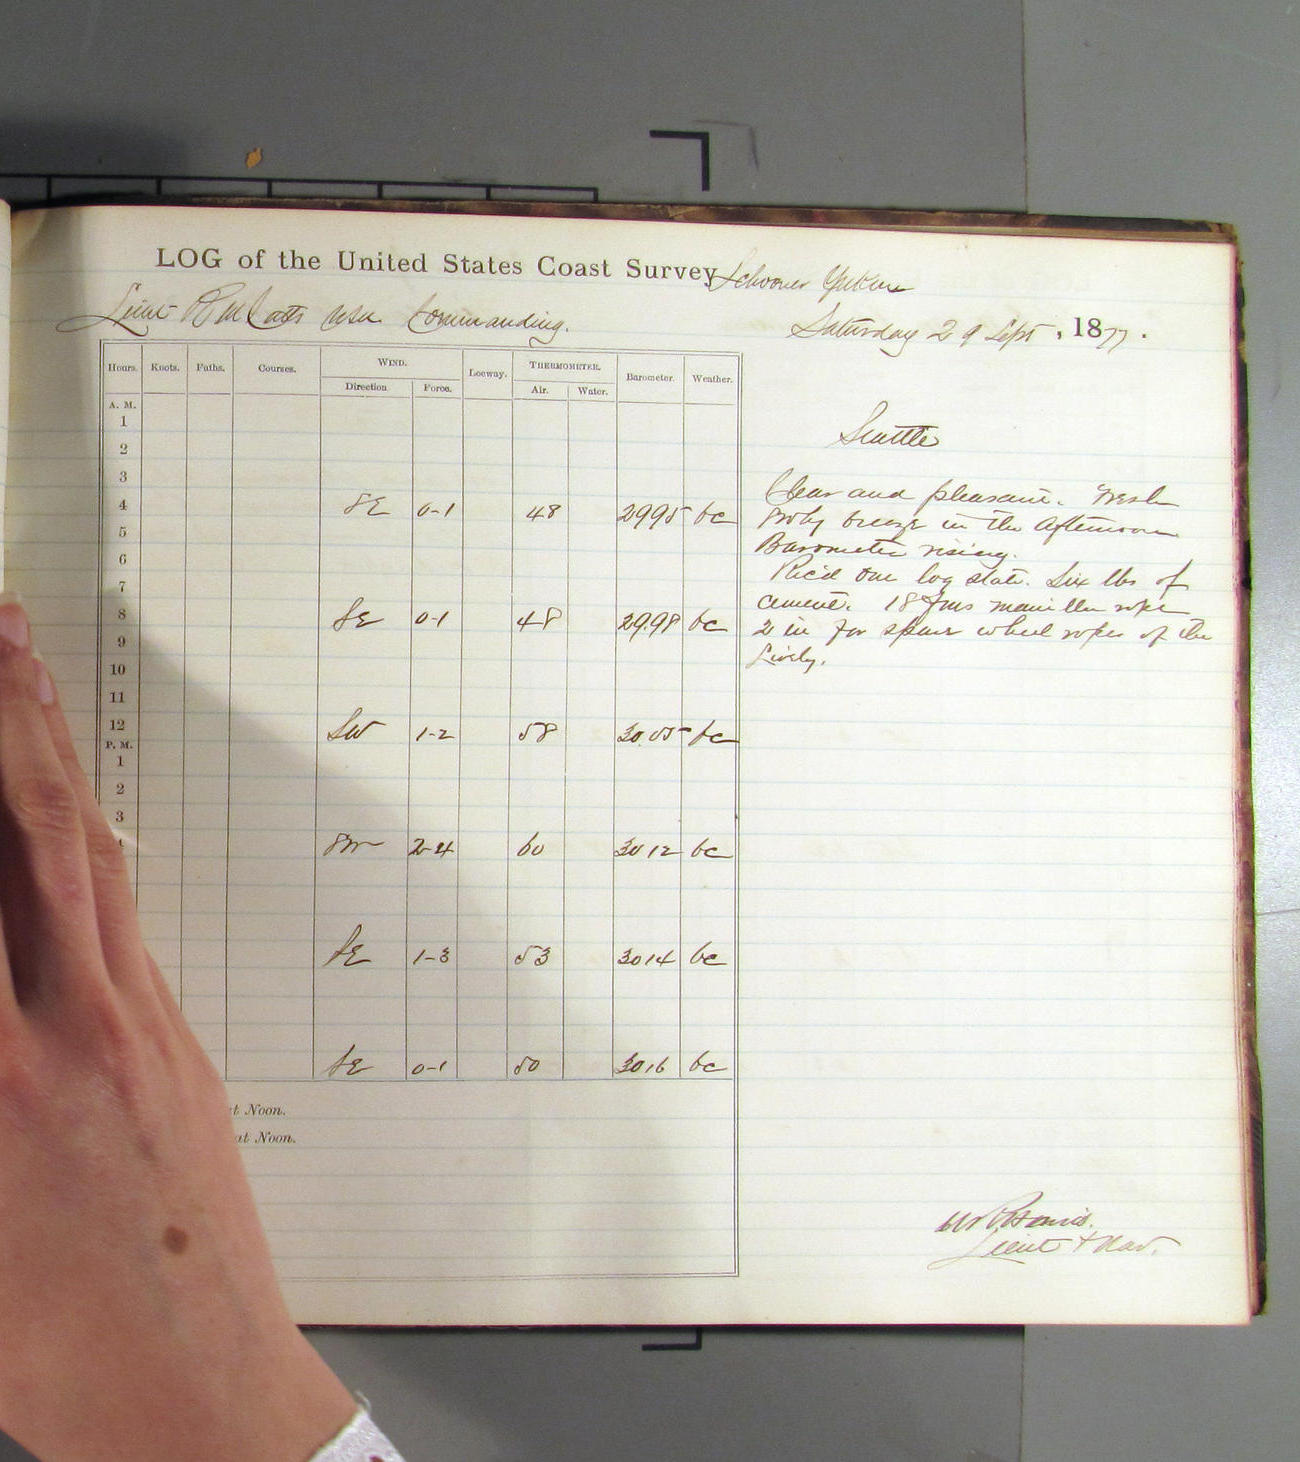 LOG of the United States Coast Survey Schooner Yukon
Lieut Commanding.
Saturday 29 Sept, 1877.
Hours. Knots. Faths. Courses. WIND. Leeway. THERMOMETER. Barometer. Weather.
Direction Force. Air. Water.
A. M.
1
2
3
4 SE 0-1 48 2995 bc
5
6
7
8 SE 0-1 48 29.98 bc
9
10
11
12 SW 1-2 58 30.05 bc
P. M.
1
2
3
SW 2-4 60 3012 bc
SE 1-3 53 3014 bc
SE 0-1 50 3016 bc
at Noon.
at Noon.
Seattle
Clear and pleasant. Fresh
breeze in the afternoon
Barometer rising.
Rec'd one log slate. Six lbs of
cement. 18 fms manilla rope
2 in for spare wheel ropes of the
Lively.
Lieut & Nav.